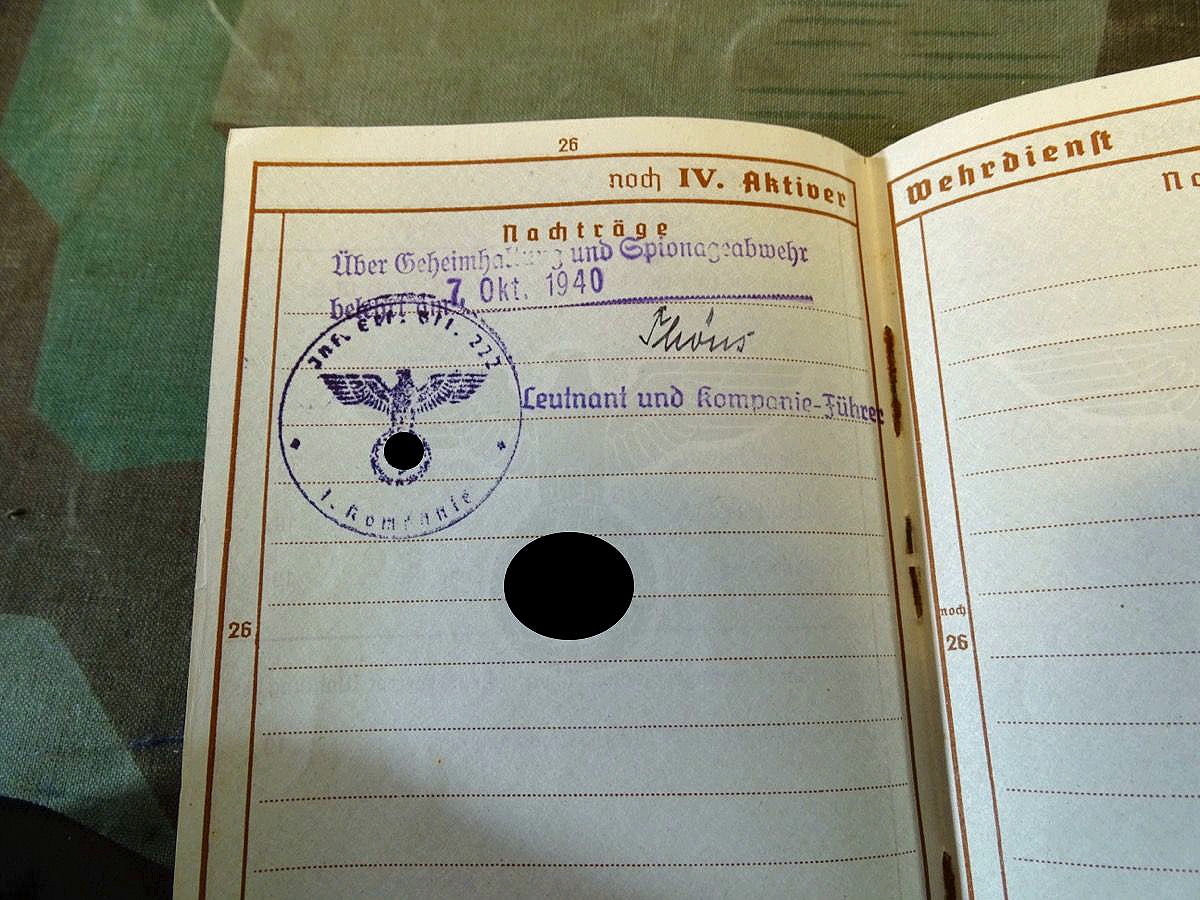 26
noch IV. Aktiver
Nachträge
Über Geheimhaltung und Spionageabwehr
belehrt am: 7. Okt. 1940
Inf. 227
Leutnant und Kompanie-Führer
1. Kompanie
26
Wehrdienst
noch
26